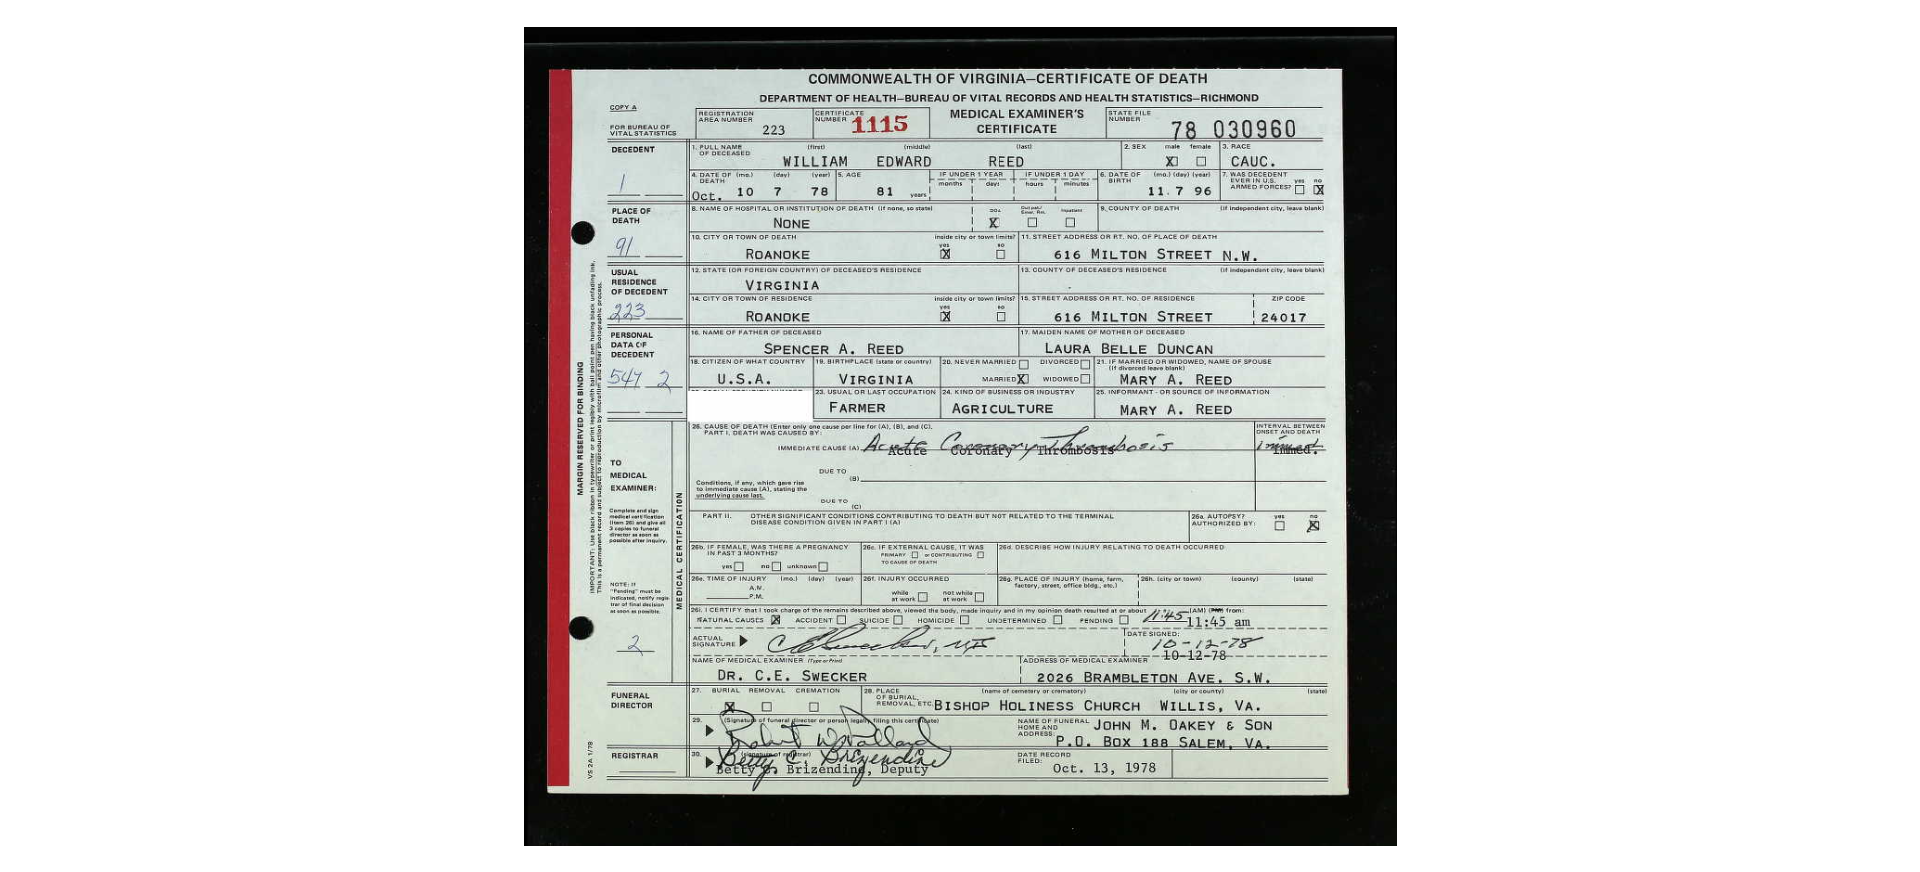 COMMONWEALTH OF VIRGINIA—CERTIFICATE OF DEATH
DEPARTMENT OF HEALTH—BUREAU OF VITAL RECORDS AND HEALTH STATISTICS—RICHMOND
COPY A
FOR BUREAU OF VITAL STATISTICS
REGISTRATION AREA NUMBER 223
CERTIFICATE NUMBER 1115
MEDICAL EXAMINER'S CERTIFICATE
STATE FILE NUMBER 78 030960
DECEDENT
1
1. FULL NAME OF DECEASED (first) (middle) (last)
WILLIAM EDWARD REED
2. SEX male female
X
3. RACE
CAUC.
4. DATE OF DEATH (mo.) (day) (year)
Oct. 10 7 78
5. AGE
81 years
IF UNDER 1 YEAR months days
IF UNDER 1 DAY hours minutes
6. DATE OF BIRTH (mo.) (day) (year)
11. 7 96
7. WAS DECEDENT EVER IN U.S. ARMED FORCES? yes no
X
PLACE OF DEATH
91
8. NAME OF HOSPITAL OR INSTITUTION OF DEATH (if none, so state)
NONE
DOA Inpatient
X
9. COUNTY OF DEATH (if independent city, leave blank)
10. CITY OR TOWN OF DEATH inside city or town limits? yes no
ROANOKE X
11. STREET ADDRESS OR RT. NO. OF PLACE OF DEATH
616 MILTON STREET N.W.
USUAL RESIDENCE OF DECEDENT
223
12. STATE (OR FOREIGN COUNTRY) OF DECEASED'S RESIDENCE
VIRGINIA
13. COUNTY OF DECEASED'S RESIDENCE (if independent city, leave blank)
14. CITY OR TOWN OF RESIDENCE inside city or town limits? yes no
ROANOKE X
15. STREET ADDRESS OR RT. NO. OF RESIDENCE ZIP CODE
616 MILTON STREET 24017
PERSONAL DATA OF DECEDENT
547 2
16. NAME OF FATHER OF DECEASED
SPENCER A. REED
17. MAIDEN NAME OF MOTHER OF DECEASED
LAURA BELLE DUNCAN
18. CITIZEN OF WHAT COUNTRY
U.S.A.
19. BIRTHPLACE (state or country)
VIRGINIA
20. NEVER MARRIED DIVORCED
MARRIED X WIDOWED
21. IF MARRIED OR WIDOWED, NAME OF SPOUSE (if divorced leave blank)
MARY A. REED
23. USUAL OR LAST OCCUPATION
FARMER
24. KIND OF BUSINESS OR INDUSTRY
AGRICULTURE
25. INFORMANT - OR SOURCE OF INFORMATION
MARY A. REED
MARGIN RESERVED FOR BINDING
IMPORTANT: Use black ribbon in typewriter or print legibly with ball point pen having black unfading ink.
This is a permanent record and subject to reproduction by microfilm and other photographic process.
TO MEDICAL EXAMINER:
Complete and sign medical certification (item 26) and give all 3 copies to funeral director as soon as possible after inquiry.
NOTE: If "Pending" must be indicated, notify registrar of final decision as soon as possible.
2
MEDICAL CERTIFICATION
26. CAUSE OF DEATH (Enter only one cause per line for (A), (B), and (C).
PART I. DEATH WAS CAUSED BY:
INTERVAL BETWEEN ONSET AND DEATH
IMMEDIATE CAUSE (A) Acute Coronary Thrombosis immed.
Acute Coronary Thrombosis immed.
DUE TO
(B)
Conditions, if any, which gave rise to immediate cause (A), stating the underlying cause last.
DUE TO
(C)
PART II. OTHER SIGNIFICANT CONDITIONS CONTRIBUTING TO DEATH BUT NOT RELATED TO THE TERMINAL DISEASE CONDITION GIVEN IN PART I (A)
26a. AUTOPSY? yes no
AUTHORIZED BY: X
26b. IF FEMALE, WAS THERE A PREGNANCY IN PAST 3 MONTHS?
yes no unknown
26c. IF EXTERNAL CAUSE, IT WAS
PRIMARY or CONTRIBUTING
TO CAUSE OF DEATH
26d. DESCRIBE HOW INJURY RELATING TO DEATH OCCURRED
26e. TIME OF INJURY (mo.) (day) (year)
A.M.
P.M.
26f. INJURY OCCURRED
while at work not while at work
26g. PLACE OF INJURY (home, farm, factory, street, office bldg., etc.)
26h. (city or town) (county) (state)
26i. I CERTIFY that I took charge of the remains described above, viewed the body, made inquiry and in my opinion death resulted at or about 11:45 (AM) from:
11:45 am
NATURAL CAUSES X ACCIDENT SUICIDE HOMICIDE UNDETERMINED PENDING
ACTUAL SIGNATURE C E Swecker, MD
DATE SIGNED:
10-12-78
10-12-78
NAME OF MEDICAL EXAMINER (Type or Print)
DR. C.E. SWECKER
ADDRESS OF MEDICAL EXAMINER
2026 BRAMBLETON AVE. S.W.
FUNERAL DIRECTOR
27. BURIAL REMOVAL CREMATION
X
28. PLACE OF BURIAL, REMOVAL, ETC. (name of cemetery or crematory) (city or county) (state)
BISHOP HOLINESS CHURCH WILLIS, VA.
29. (Signature of funeral director or person legally filing this certificate)
NAME OF FUNERAL HOME AND ADDRESS:
JOHN M. OAKEY & SON
P.O. BOX 188 SALEM, VA.
REGISTRAR
30. (signature of registrar)
Betty C. Brizendine
Betty C. Brizendine, Deputy
DATE RECORD FILED:
Oct. 13, 1978
VS 2A 1/78